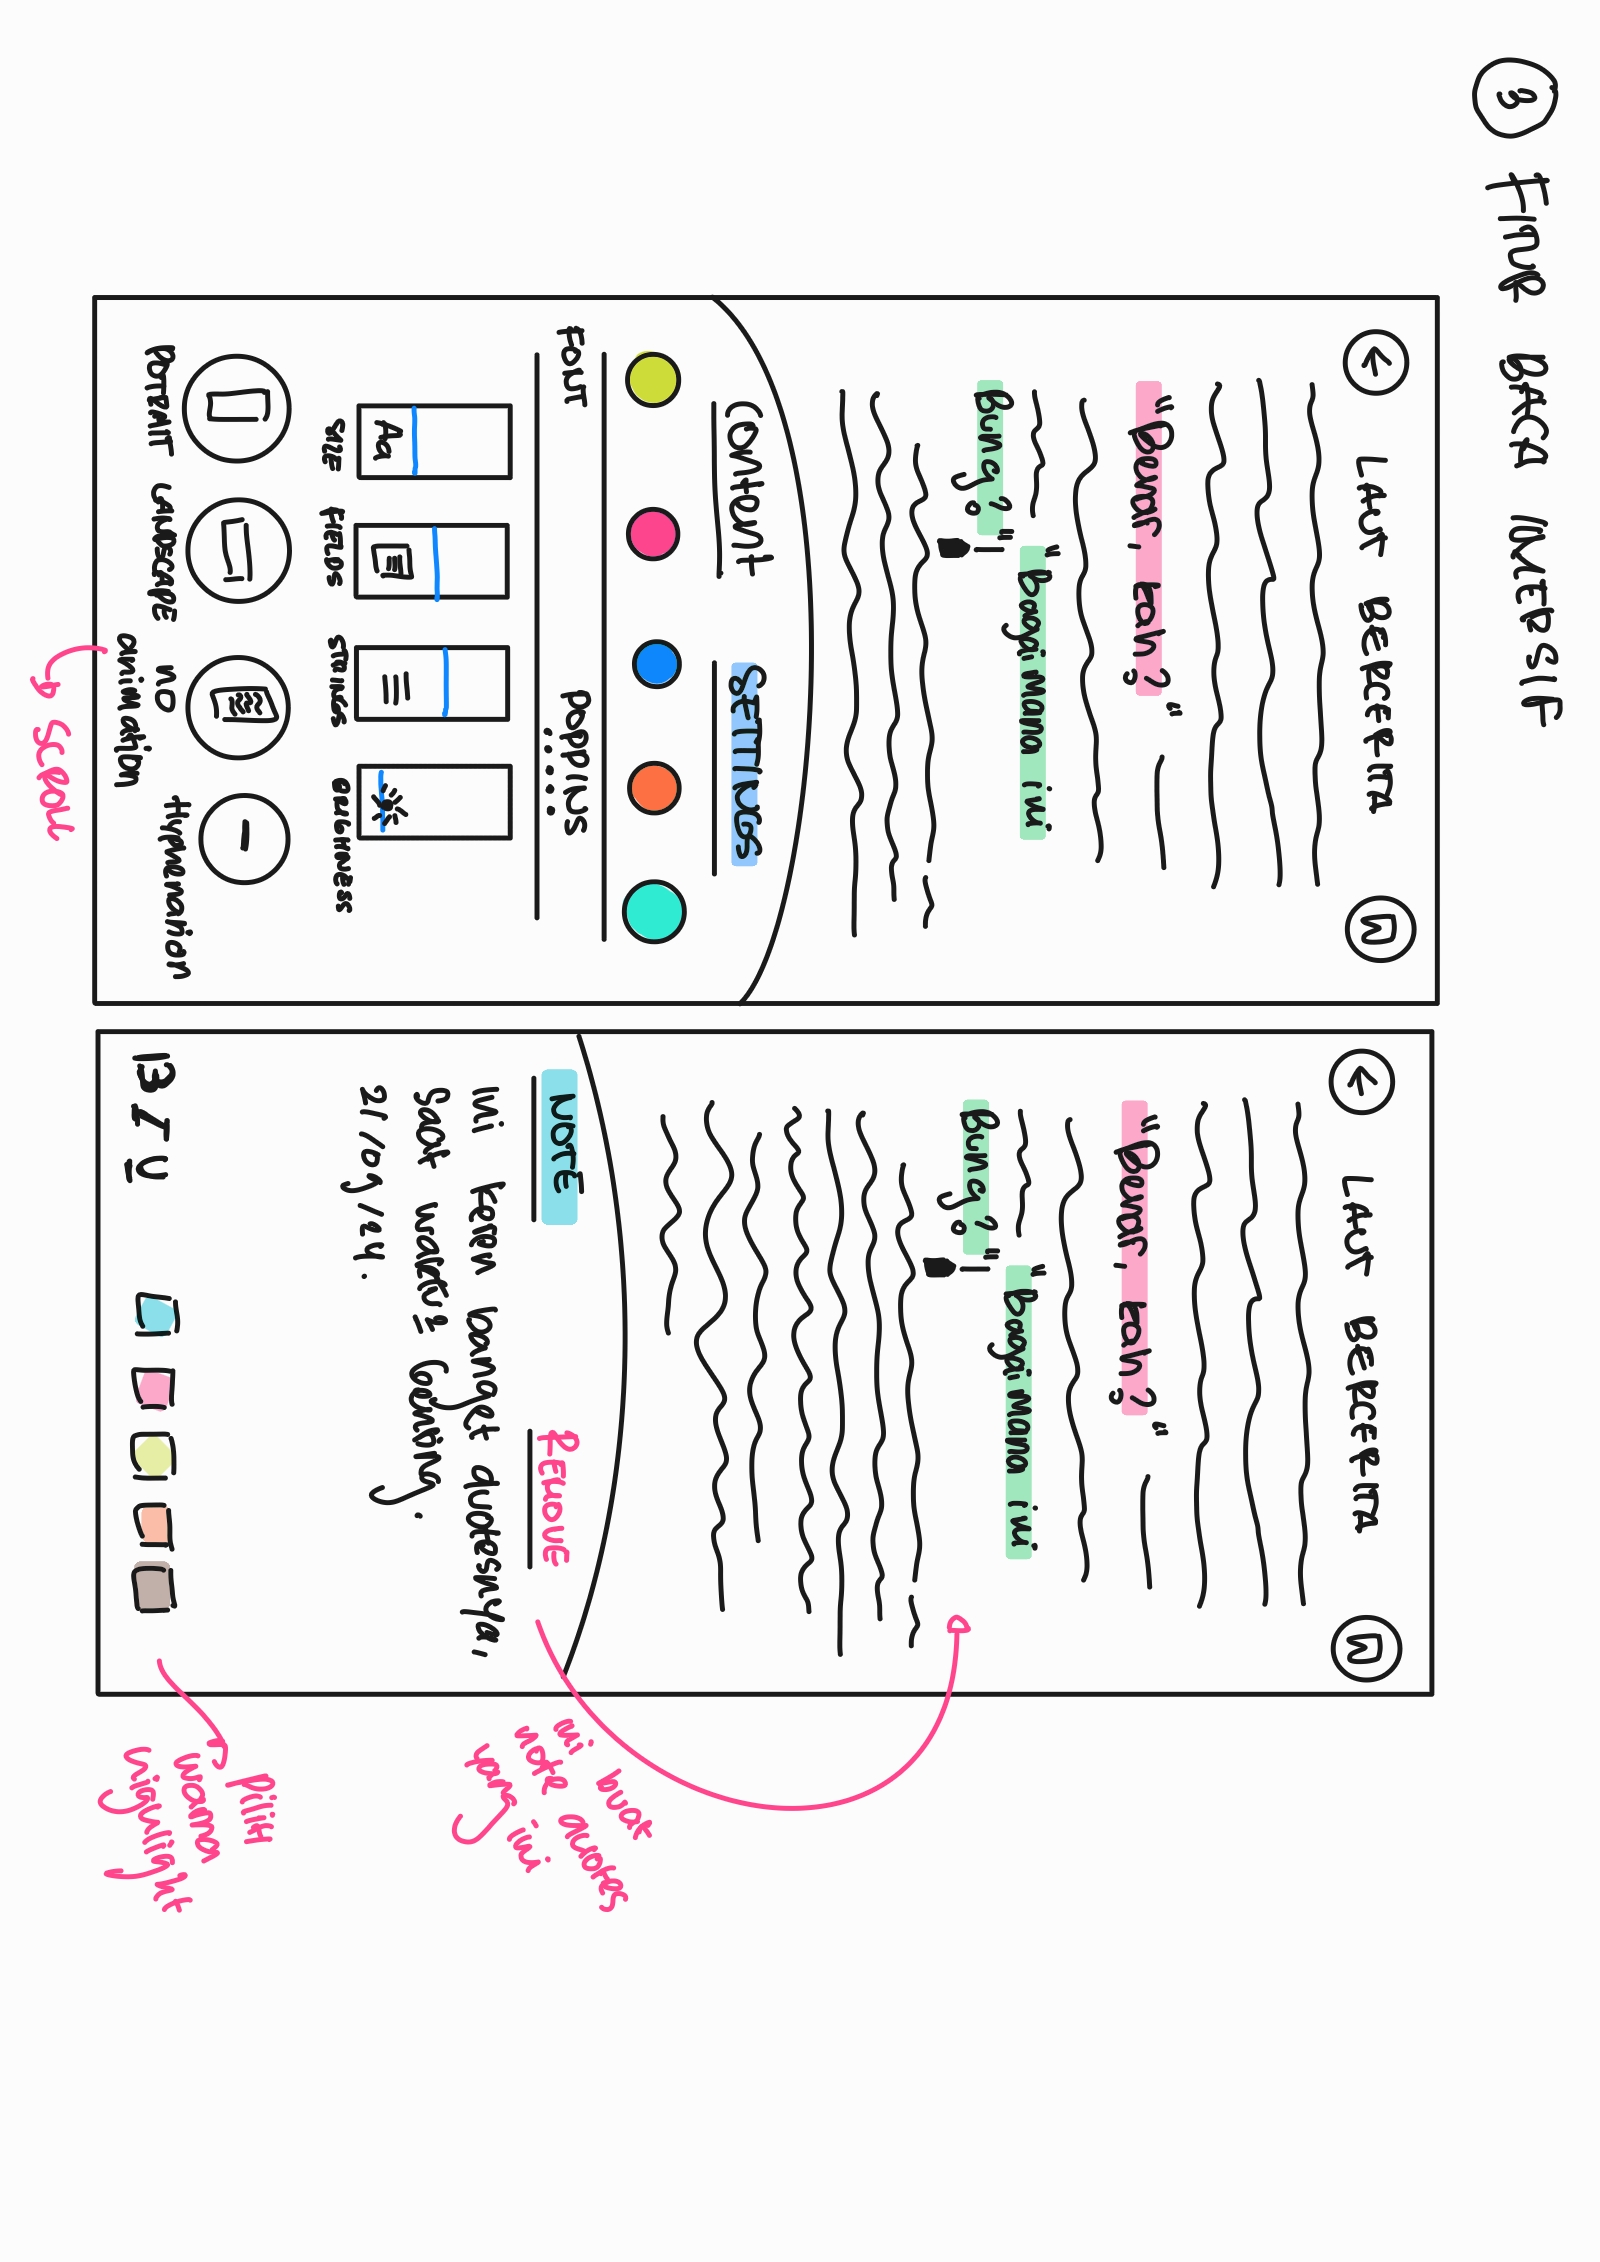 3 FITUR BACA IMERSIF
LAUT BERCERITA
"Benar, kah?"
"Bagaimana ini
Bung?"
Content SETTINGS
FONT POPPINS
Aa
SIZE FIELDS STRINGS BRIGHNESS
POTRAIT LANDSCAPE NO Hyphenation
animation
SCROLL
LAUT BERCERITA
"Benar, kah?"
"Bagaimana ini
Bung?"
NOTE REMOVE
ini keren banget quotesnya,
Saat waktu2 Genting.
21/09/24.
B I U
ini buat
note quotes
yang ini
pilih
warna
higulight